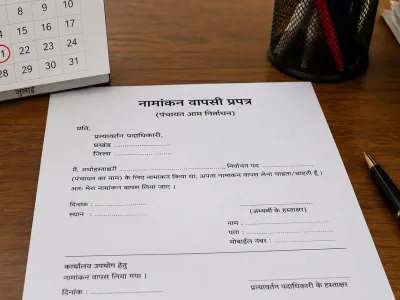 21
22
23
24
28
29
30
31
जुलाई
नामांकन वापसी प्रपत्र
(पंचायत आम निर्वाचन)
प्रति,
प्रत्यावर्तन पदाधिकारी,
प्रखंड
जिला
मैं, अधोहस्ताक्षरी ........................, निर्वाचन पद ........................
(पंचायत का नाम) के लिए नामांकन किया था, अपना नामांकन वापस लेना चाहता/चाहती हूँ।
अतः मेरा नामांकन वापस लिया जाए ।
दिनांक :
स्थान :
(अभ्यर्थी के हस्ताक्षर)
नाम :
पता :
मोबाईल नंबर :
कार्यालय उपयोग हेतु
नामांकन वापस लिया गया ।
दिनांक :
प्रत्यावर्तन पदाधिकारी के हस्ताक्षर